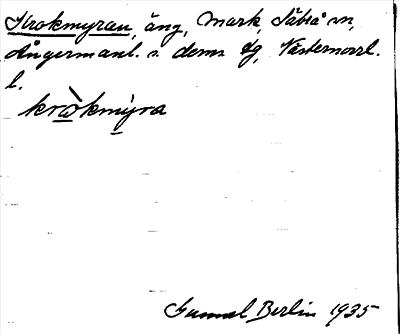 Krokmyran, äng, Mark, Säbrå sn,
Ångermanl. s. doms tg, Västernorrl.
l.
kròkmyra
Gunnel Berlin 1935